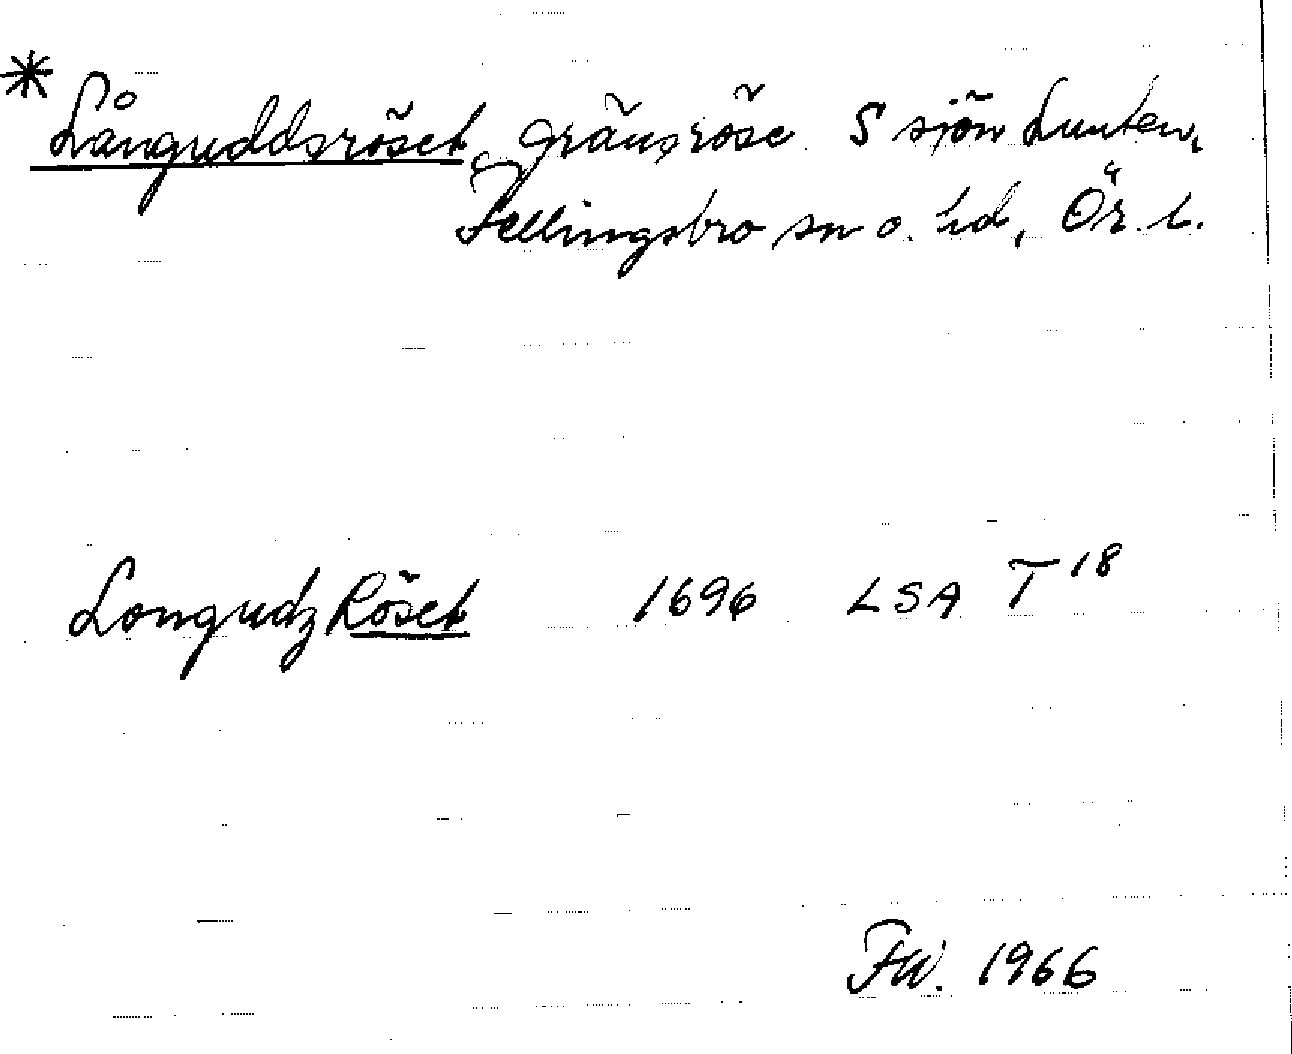 * Långuddsröset, gränsröse S sjön Lunten,
Fellingsbro sn o. hd, Ör. l.
Longudz Röset 1696 LSA T 18
FW. 1966